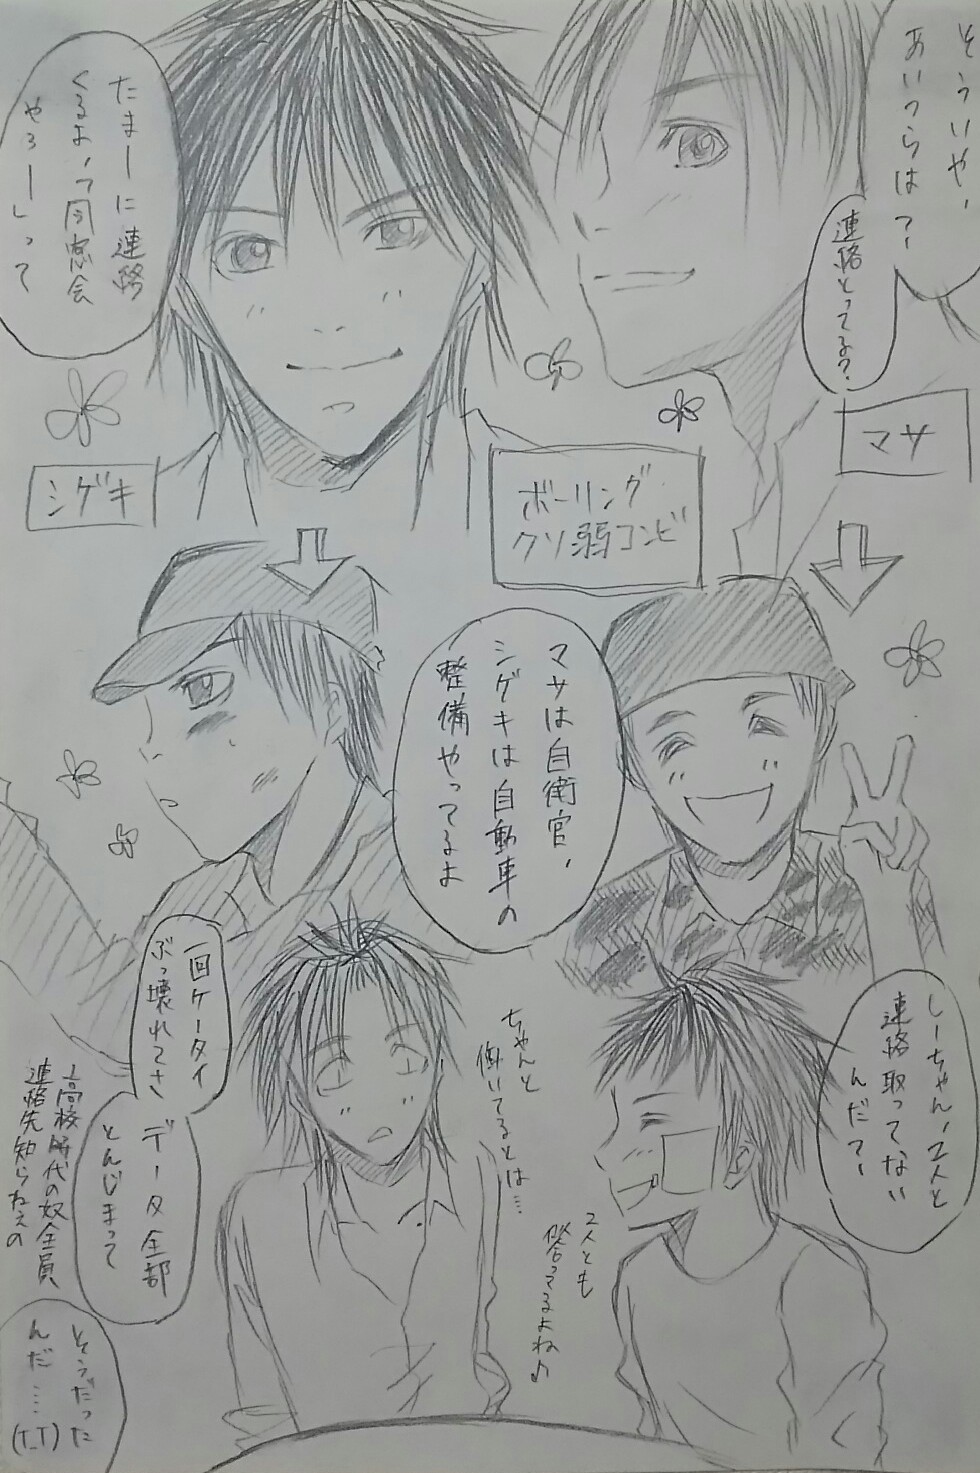 そういや、
あいつらは?
連絡とってる?
マサ
たまーに連絡
くるよ、同窓会
やろーしって
シゲキ
ボーリング
クソ弱コンビ
マサは自衛官、
シゲキは自動車の
整備やってるよ
しーちゃん、2人と
連絡取ってない
んだ?
ちゃんと
働いてるとは…
2人とも
合ってるよね♪
一回ケータイ
ぶっ壊れてさ
データ全部
とんじまって
高校時代の奴全員
連絡先知らねぇの
そうだった
んだ…
(T_T)